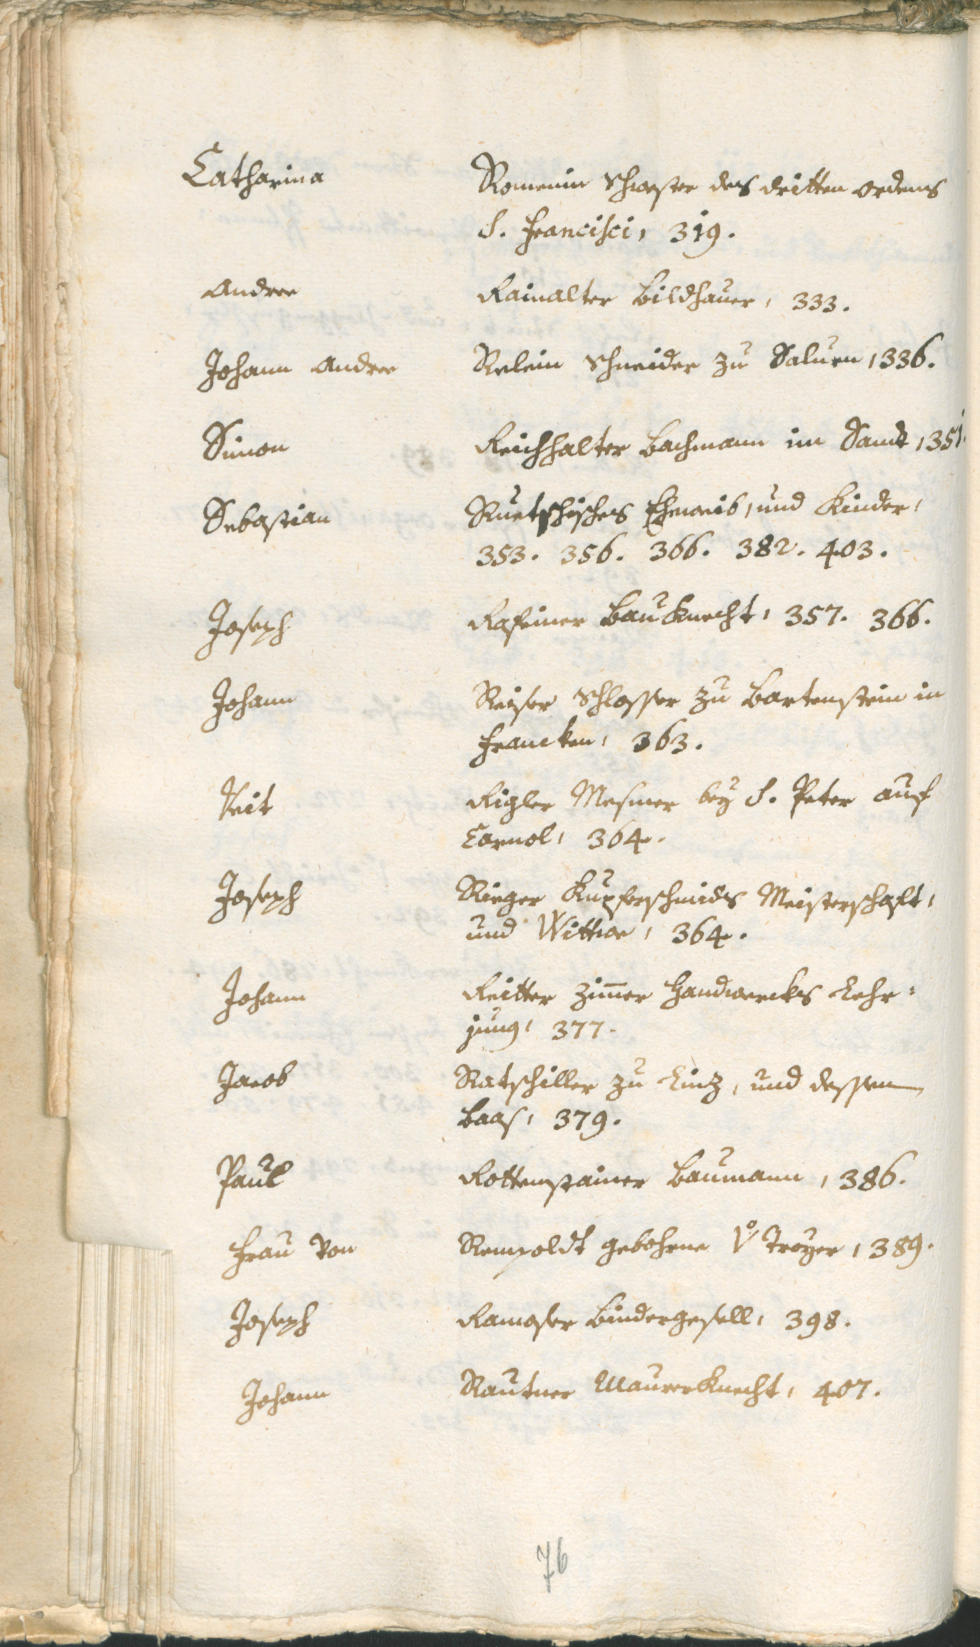 Catharina Romenin Schwester des dritten ordens
S. Francisci, 319.
Andree Rainalter Bildhauer, 333.
Johann Andree Relein Schneider zu Salurn, 336.
Simon Reichhalter Bachmann im Sand, 351.
Sebastian Ruetschisches Eheweib, und Kinder,
353. 356. 366. 382. 403.
Joseph Rafeiner Bau Knecht, 357. 366.
Johann Reiser Schlosser zu Bartenstein in
Francken, 363.
Veit Rigler Mesmer bey S. Peter auf
Carnol, 364.
Joseph Rieger Kupferschmids Meisterschaft,
und Wittwe, 364.
Johann Reitter Zimer Handwercks Lehr:
jung, 377.
Jacob Ratschiller zu Linz, und dessen
Baas, 379.
Paul Rottenstainer Baumann, 386.
Frau Von Rempoldt gebohrne V Troyer, 389.
Joseph Ramoser Bindergesell, 398.
Johann Rautner MaurerKnecht, 407.
76